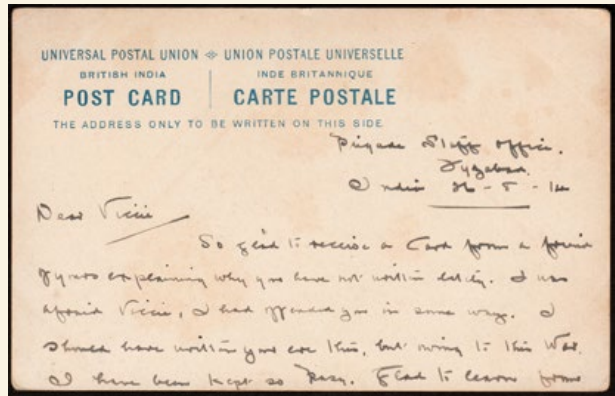 UNIVERSAL POSTAL UNION UNION POSTALE UNIVERSELLE
BRITISH INDIA INDE BRITANNIQUE
POST CARD CARTE POSTALE
THE ADDRESS ONLY TO BE WRITTEN ON THIS SIDE
Brigade Staff Office.
Fyzabad.
India 26-8-14
Dear Viccie
So glad to receive a Card from a friend
of yours explaining why you have not written lately. I was
afraid Viccie, I had offended you in some way. I
should have written you ere this, but owing to this War.
I have been kept so busy. Glad to learn from